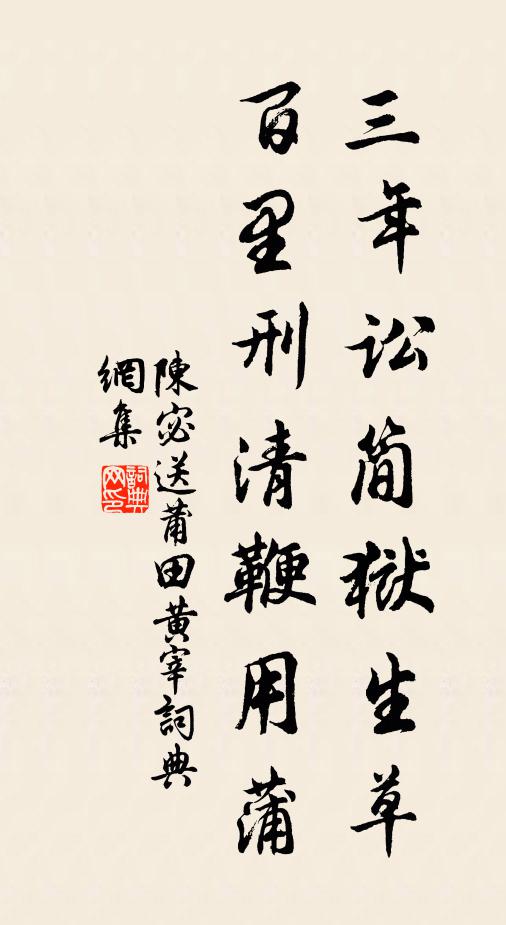 三年訟简獄生草
百里刑清鞭用蒲
陳宓送莆田黄宰詞典
網集
詞典
网印